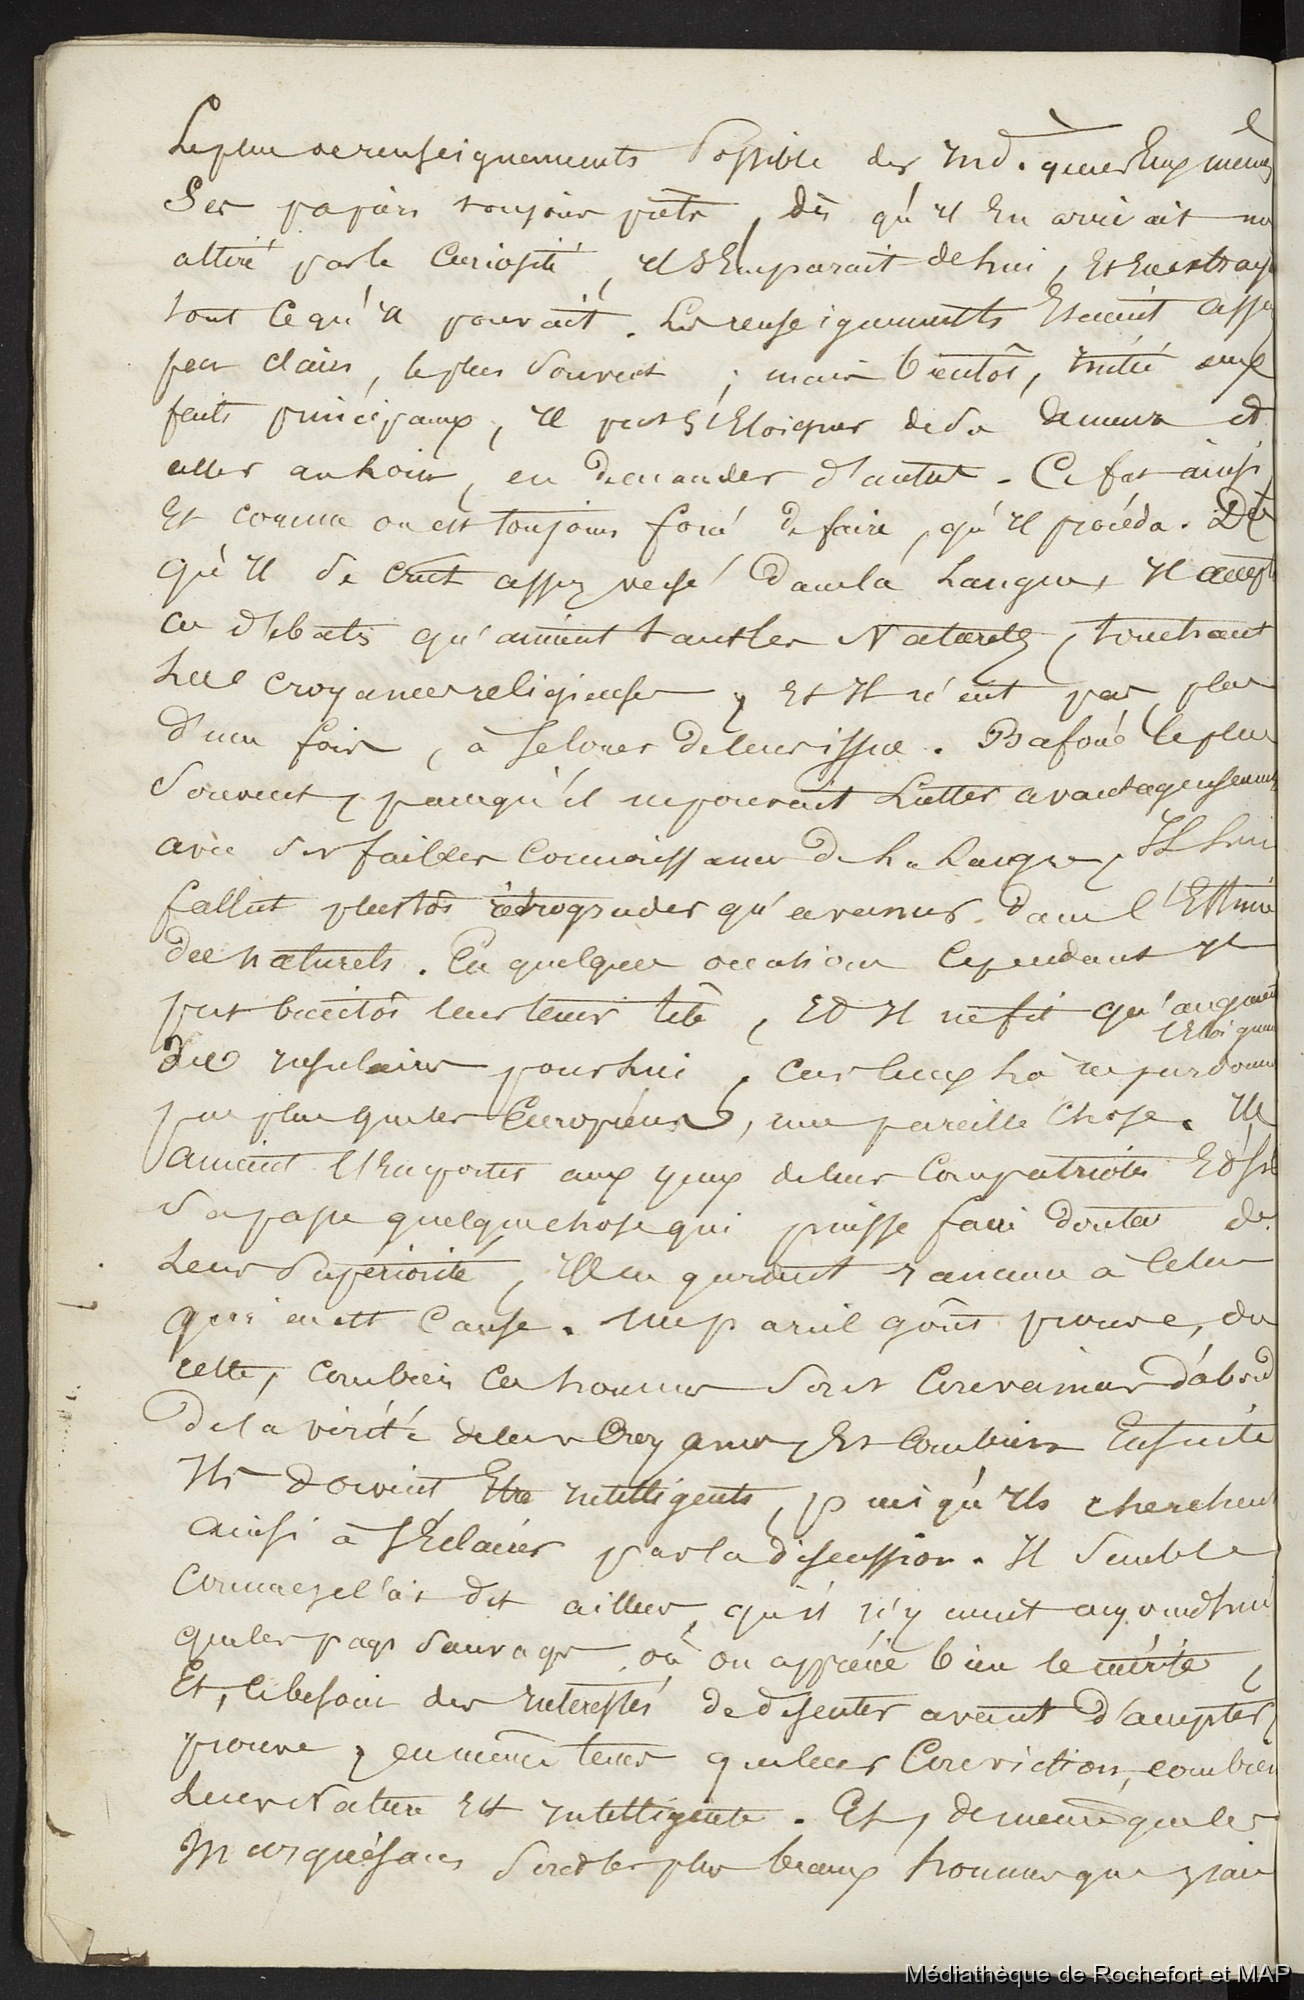 Le plus de renseignements possible des Indigènes Eux mêmes
Ses papiers toujours prêts, dès qu'il En arrivait un
attiré par la Curiosité, il s'Emparait de lui, Et En extray
tout Ce qu'il pouvait. Les renseignements Etaient assez
peu clairs, le plus souvent ; mais bientôt, initié aux
faits principaux, il put s'Eloigner de sa demeure et
aller au loin, en demander d'autres. Ce fut ainsi
Et comme on est toujours forcé de faire, qu'il procéda. Dès
qu'Il se crut assez versé dans la Langue, Il accepta
ces débats qu'aiment tant les Naturels, touchant
Les croyances religieuses, Et Il n'eut pas, plus
d'une fois, à se louer de leur issue. Bafoué le plus
souvent, parcequ'il ne pouvait Lutter avantageusement
avec ses faibles Connaissances de La Langue, Il lui
fallut plustôt rétrograder qu'avancer dans l'Estime
des naturels. En quelques occasions Cependant Il
put bientôt leur tenir tête, Et Il ne fit qu'augmenter
l'Eloignement
des insulaires pour lui, Car Ceux là ne pardonnent
pas plus que les Européens, une pareille chose. Ils
aiment l'Emporter aux yeux de leurs Compatriotes Et s'il
se passe quelque chose qui puisse faire douter de
Leur Supériorité, Ils en gardent rancune à Celui
qui en est Cause. Un pareil goût prouve, du
reste, combien Ces hommes sont Convaincus d'abord
de la vérité de leurs Croyances, Et Combien Ensuite
Ils doivent Etre intelligents, puisqu'Ils cherchent
ainsi à s'Eclairer par la discussion. Il semble
Comme je l'ai dit ailleurs, qu'il n'y aurait aujourd'hui
que les pays sauvages où on apprécie bien le mérite,
Et, le besoin des intéressés de discuter avant d'accepter,
prouve, en même tems que leur Conviction, combien
Leur Nature Est intelligente. Et, de même que les
Marquésans sont les plus beaux hommes que j'aie